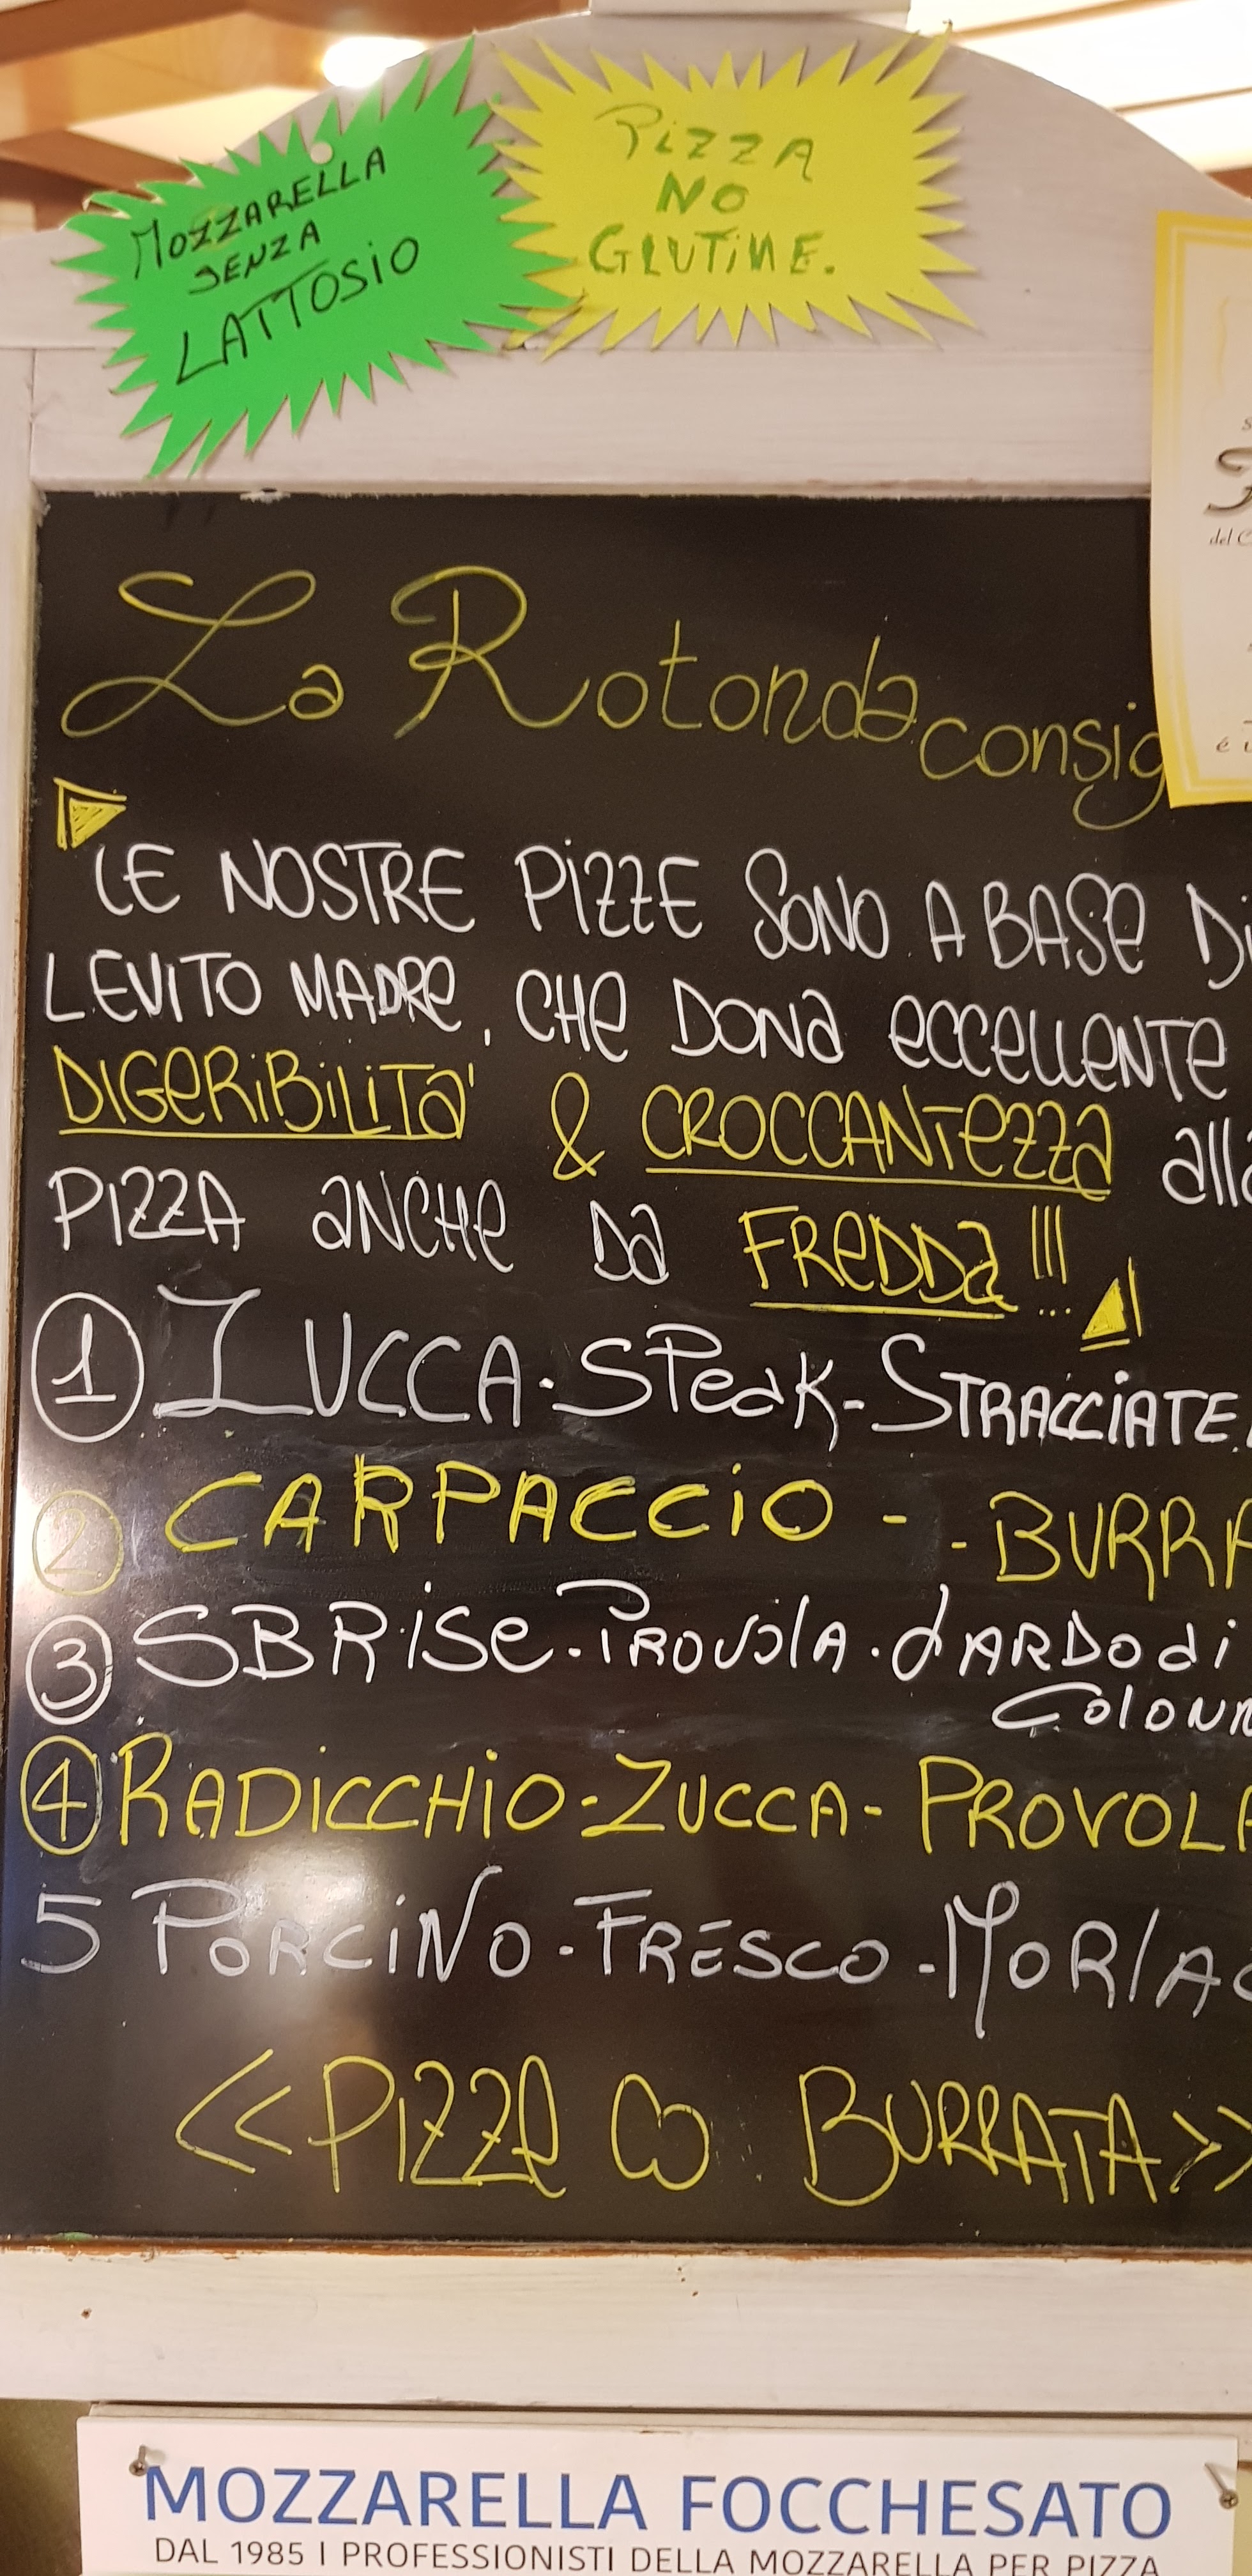 MOZZARELLA
SENZA
LATTOSIO
PIZZA
NO
GLUTINE.
La Rotonda consig
LE NOSTRE PIZZE SONO A BASE Di
LEVITO MADRE, CHE DONA ECCELLENTE
DIGERIBILITA' & CROCCANTEZZA alla
PIZZA ANCHE DA FREDDA!!!
1 ZUCCA - SPEAK - STRACCIATE
2 CARPACCIO - - BURRA
3 SBRISE - PROVOLA - LARDO di
COLONN
4 RADICCHIO - ZUCCA - PROVOLA
5 PORCINO - FRESCO - MORLAC
<< PIZZE CO BURRATA >>
del C
é u
MOZZARELLA FOCCHESATO
DAL 1985 I PROFESSIONISTI DELLA MOZZARELLA PER PIZZA